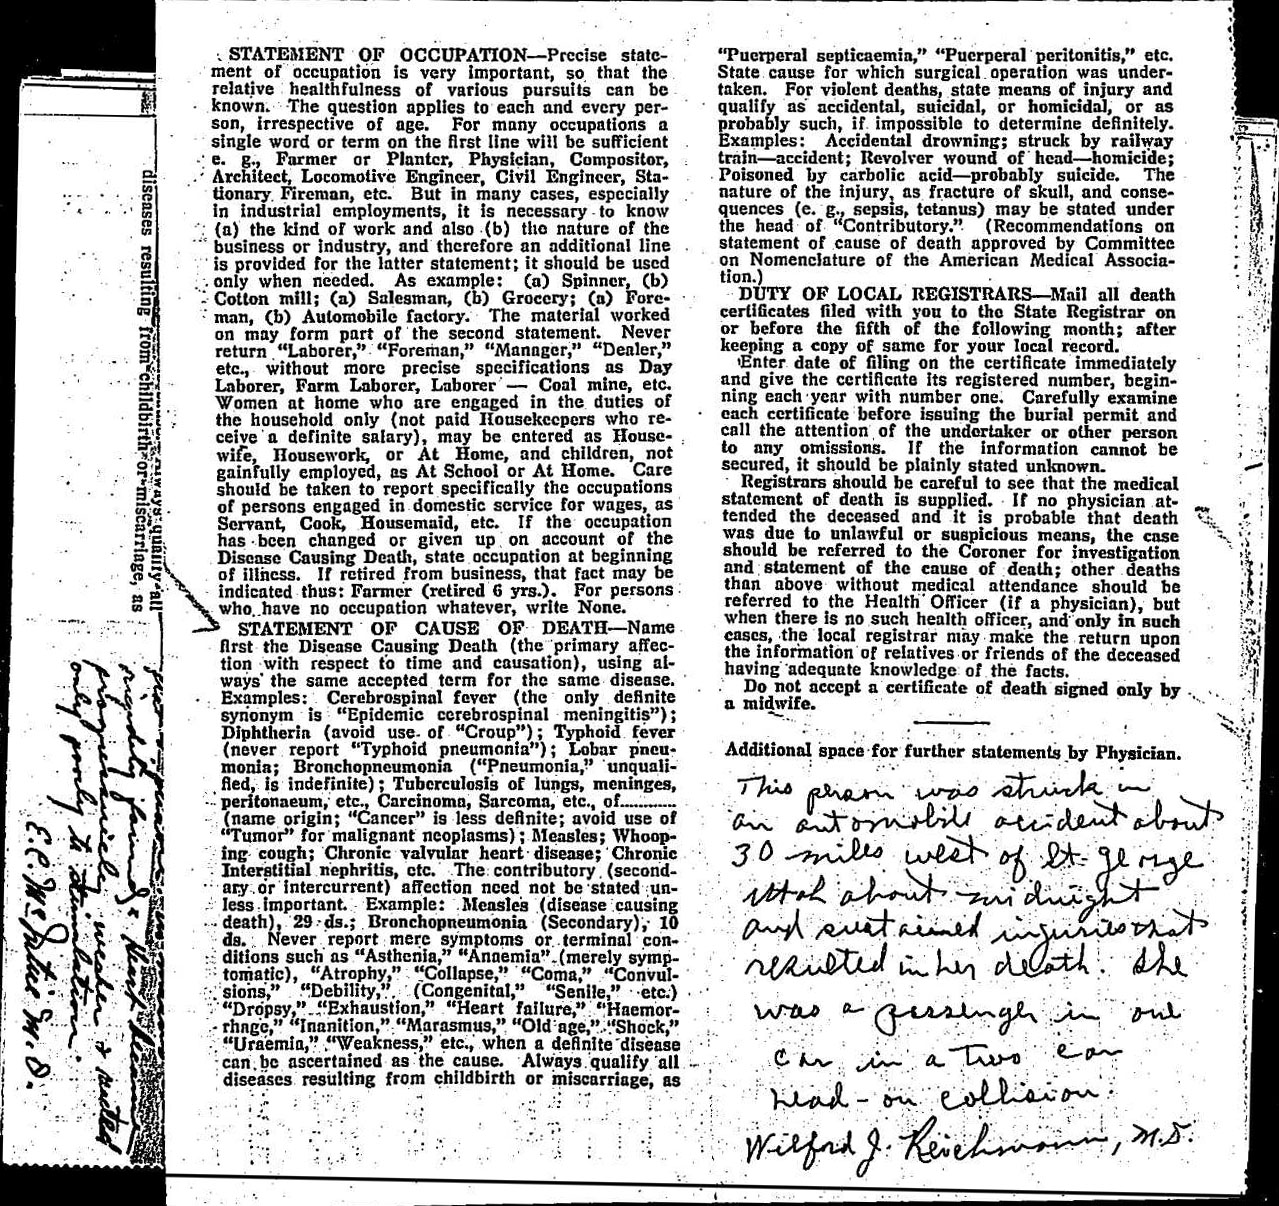 STATEMENT OF OCCUPATION—Precise state-
ment of occupation is very important, so that the
relative healthfulness of various pursuits can be
known. The question applies to each and every per-
son, irrespective of age. For many occupations a
single word or term on the first line will be sufficient
e. g., Farmer or Planter, Physician, Compositor,
Architect, Locomotive Engineer, Civil Engineer, Sta-
tionary Fireman, etc. But in many cases, especially
in industrial employments, it is necessary to know
(a) the kind of work and also (b) the nature of the
business or industry, and therefore an additional line
is provided for the latter statement; it should be used
only when needed. As example: (a) Spinner, (b)
Cotton mill; (a) Salesman, (b) Grocery; (a) Fore-
man, (b) Automobile factory. The material worked
on may form part of the second statement. Never
return "Laborer," "Foreman," "Manager," "Dealer,"
etc., without more precise specifications as Day
Laborer, Farm Laborer, Laborer — Coal mine, etc.
Women at home who are engaged in the duties of
the household only (not paid Housekeepers who re-
ceive a definite salary), may be entered as House-
wife, Housework, or At Home, and children, not
gainfully employed, as At School or At Home. Care
should be taken to report specifically the occupations
of persons engaged in domestic service for wages, as
Servant, Cook, Housemaid, etc. If the occupation
has been changed or given up on account of the
Disease Causing Death, state occupation at beginning
of illness. If retired from business, that fact may be
indicated thus: Farmer (retired 6 yrs.). For persons
who have no occupation whatever, write None.
STATEMENT OF CAUSE OF DEATH—Name
first the Disease Causing Death (the primary affec-
tion with respect to time and causation), using al-
ways the same accepted term for the same disease.
Examples: Cerebrospinal fever (the only definite
synonym is "Epidemic cerebrospinal meningitis");
Diphtheria (avoid use of "Croup"); Typhoid fever
(never report "Typhoid pneumonia"); Lobar pneu-
monia; Bronchopneumonia ("Pneumonia," unquali-
fied, is indefinite); Tuberculosis of lungs, meninges,
peritonaeum, etc., Carcinoma, Sarcoma, etc., of............
(name origin; "Cancer" is less definite; avoid use of
"Tumor" for malignant neoplasms); Measles; Whoop-
ing cough; Chronic valvular heart disease; Chronic
Interstitial nephritis, etc. The contributory (second-
ary or intercurrent) affection need not be stated un-
less important. Example: Measles (disease causing
death), 29 ds.; Bronchopneumonia (Secondary), 10
ds. Never report mere symptoms or terminal con-
ditions such as "Asthenia," "Anaemia" (merely symp-
tomatic), "Atrophy," "Collapse," "Coma," "Convul-
sions," "Debility," (Congenital," "Senile," etc.)
"Dropsy," "Exhaustion," "Heart failure," "Haemor-
rhage," "Inanition," "Marasmus," "Old age," "Shock,"
"Uraemia," "Weakness," etc., when a definite disease
can be ascertained as the cause. Always qualify all
diseases resulting from childbirth or miscarriage, as
"Puerperal septicaemia," "Puerperal peritonitis," etc.
State cause for which surgical operation was under-
taken. For violent deaths, state means of injury and
qualify as accidental, suicidal, or homicidal, or as
probably such, if impossible to determine definitely.
Examples: Accidental drowning; struck by railway
train—accident; Revolver wound of head—homicide;
Poisoned by carbolic acid—probably suicide. The
nature of the injury, as fracture of skull, and conse-
quences (e. g., sepsis, tetanus) may be stated under
the head of "Contributory." (Recommendations on
statement of cause of death approved by Committee
on Nomenclature of the American Medical Associa-
tion.)
DUTY OF LOCAL REGISTRARS—Mail all death
certificates filed with you to the State Registrar on
or before the fifth of the following month; after
keeping a copy of same for your local record.
Enter date of filing on the certificate immediately
and give the certificate its registered number, begin-
ning each year with number one. Carefully examine
each certificate before issuing the burial permit and
call the attention of the undertaker or other person
to any omissions. If the information cannot be
secured, it should be plainly stated unknown.
Registrars should be careful to see that the medical
statement of death is supplied. If no physician at-
tended the deceased and it is probable that death
was due to unlawful or suspicious means, the case
should be referred to the Coroner for investigation
and statement of the cause of death; other deaths
than above without medical attendance should be
referred to the Health Officer (if a physician), but
when there is no such health officer, and only in such
cases, the local registrar may make the return upon
the information of relatives or friends of the deceased
having adequate knowledge of the facts.
Do not accept a certificate of death signed only by
a midwife.
Additional space for further statements by Physician.
This person was struck in
an automobile accident about
30 miles west of St. George
Utah about midnight
and sustained injuries that
resulted in her death. She
was a passenger in one
car in a two car
head-on collision.
Wilford J. Reichmann, M.D.
always qualify all
diseases resulting from childbirth or miscarriage, as
heart became
progressively weaker & reacted
only poorly to stimulation.
M.D.